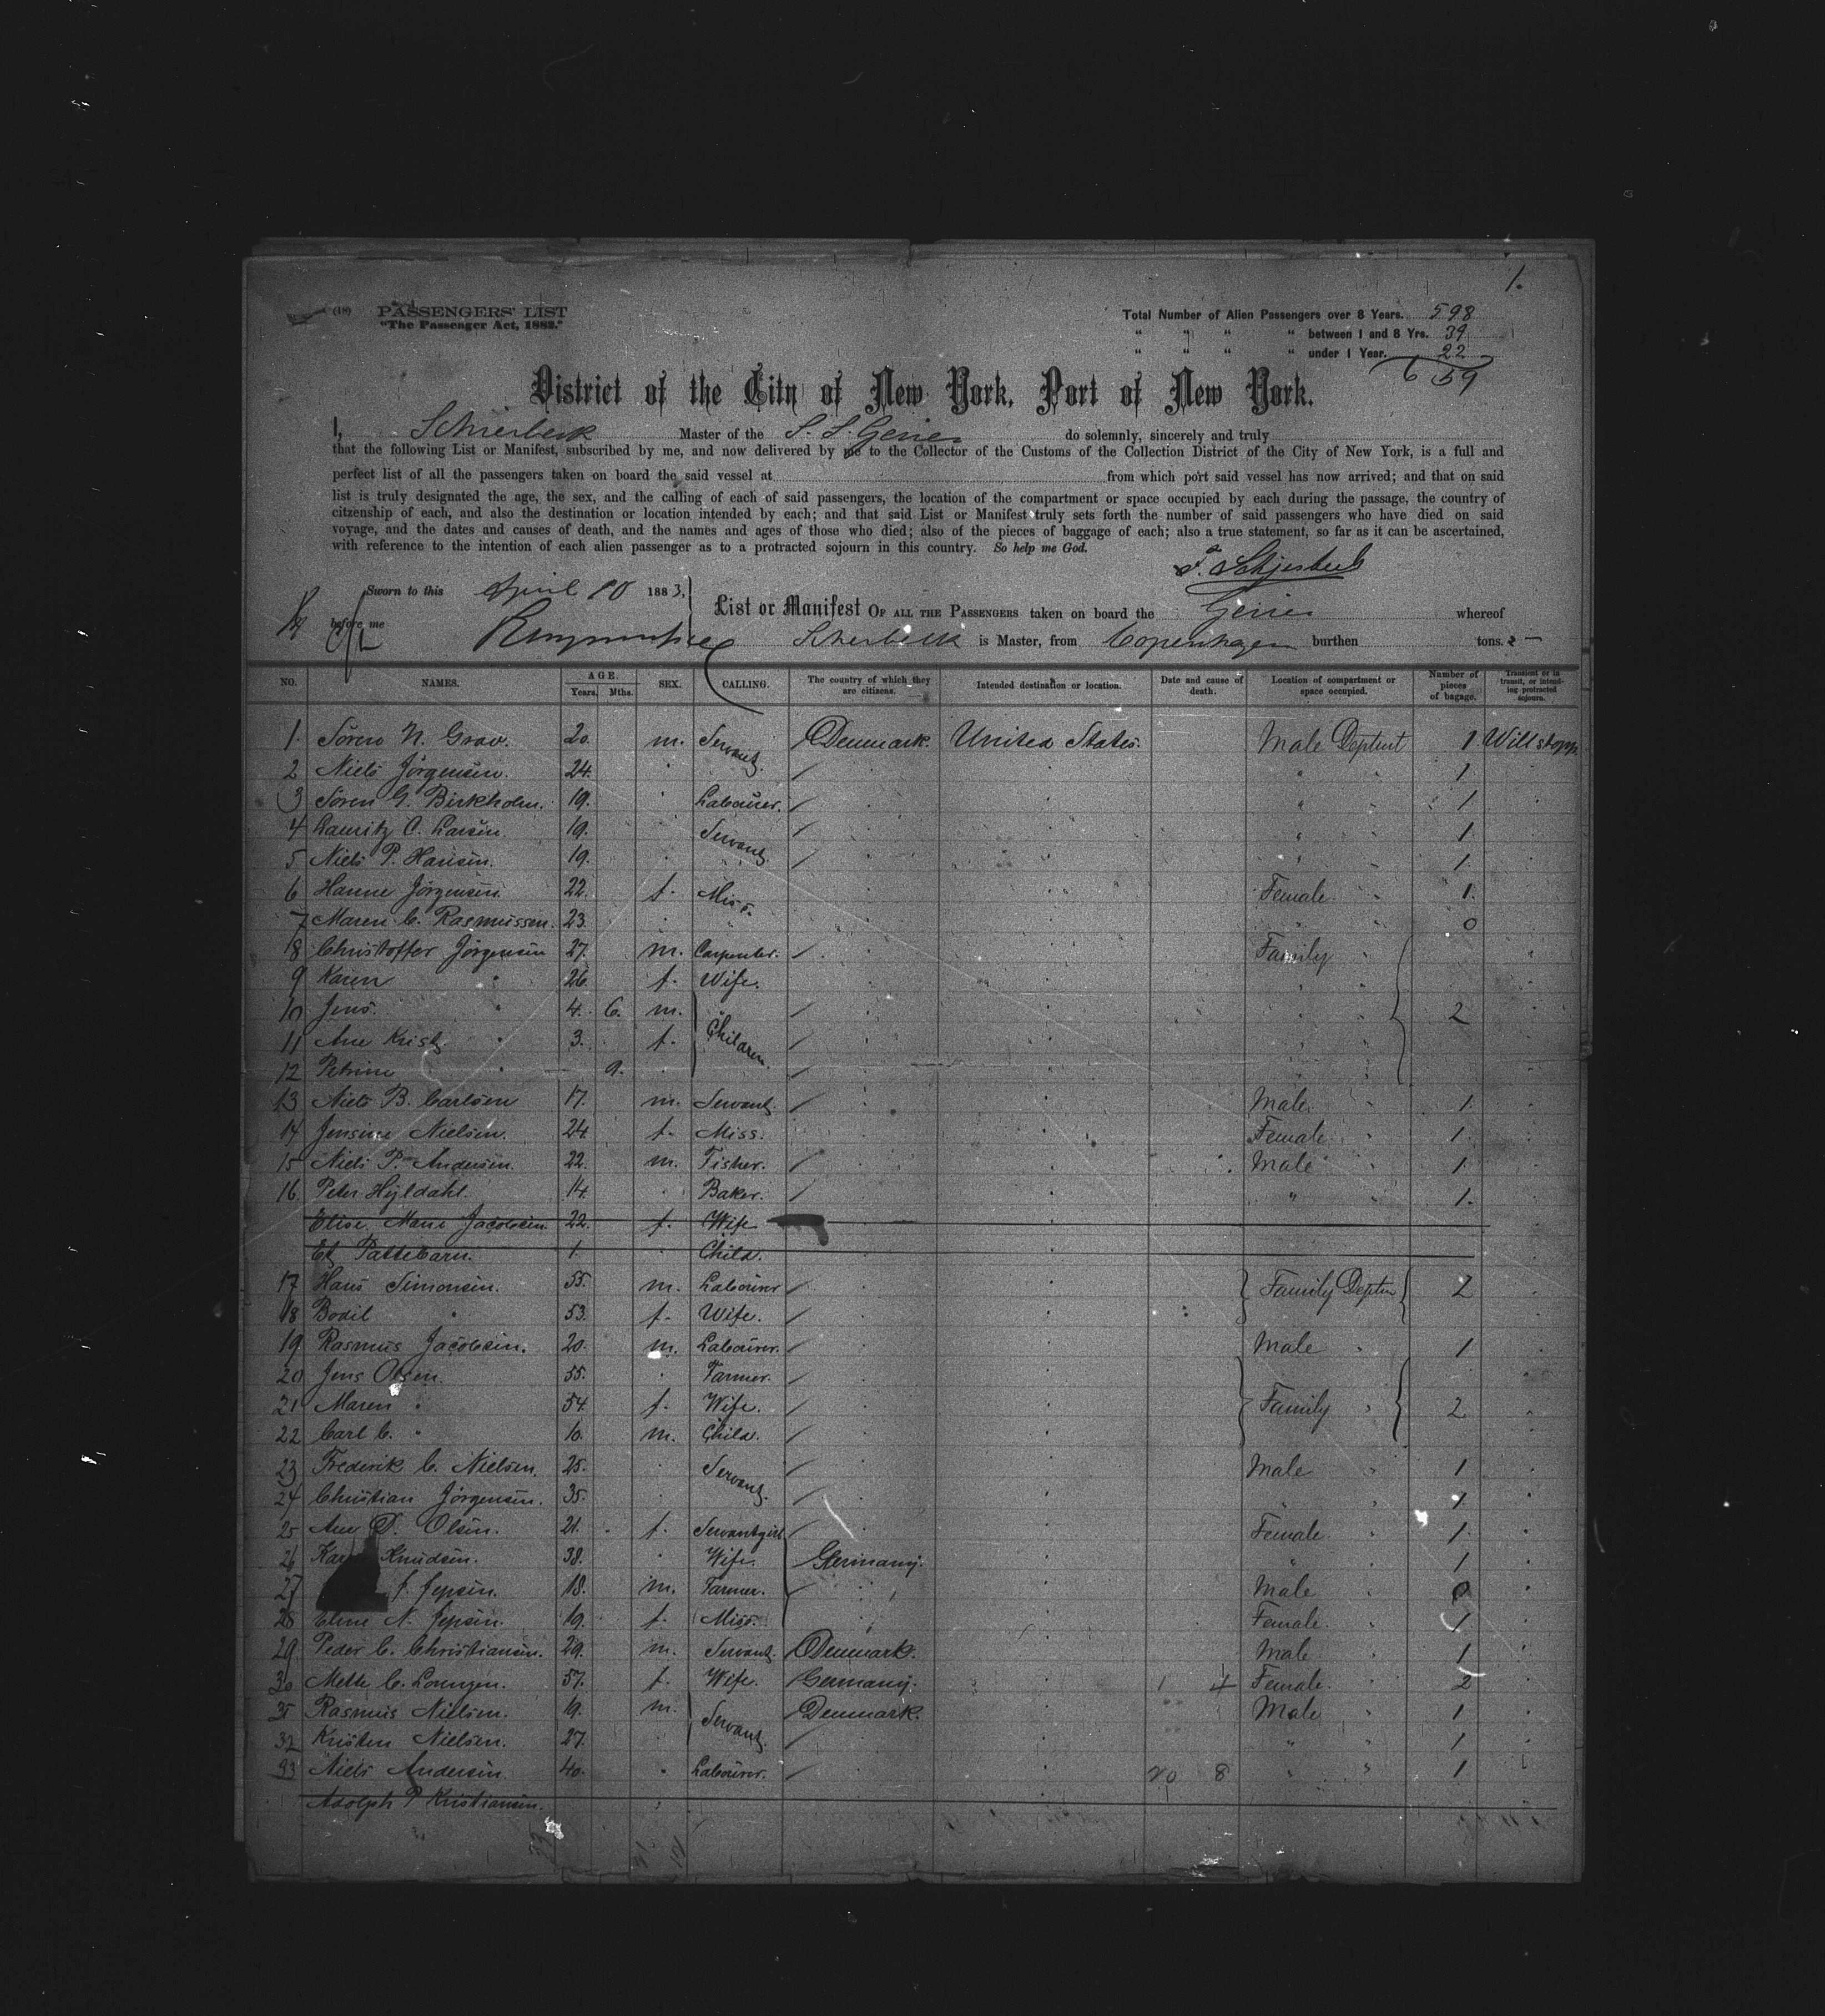 1.
(18) PASSENGERS' LIST
"The Passenger Act, 1882."
Total Number of Alien Passengers over 8 Years. 598
" " " " between 1 and 8 Yrs. 39
" " " " under 1 Year. 22
659
District of the City of New York, Port of New York.
I, Schierbeck Master of the S. S. Geiser do solemnly, sincerely and truly
that the following List or Manifest, subscribed by me, and now delivered by me to the Collector of the Customs of the Collection District of the City of New York, is a full and
perfect list of all the passengers taken on board the said vessel at from which port said vessel has now arrived; and that on said
list is truly designated the age, the sex, and the calling of each of said passengers, the location of the compartment or space occupied by each during the passage, the country of
citzenship of each, and also the destination or location intended by each; and that said List or Manifest truly sets forth the number of said passengers who have died on said
voyage, and the dates and causes of death, and the names and ages of those who died; also of the pieces of baggage of each; also a true statement, so far as it can be ascertained,
with reference to the intention of each alien passenger as to a protracted sojourn in this country. So help me God.
Sworn to this April 10 1883,
before me
List or Manifest OF ALL THE PASSENGERS taken on board the Geiser whereof
Schierbeck is Master, from Copenhagen burthen tons.
NO. NAMES. AGE. Years. Mths. SEX. CALLING. The country of which they are citizens. Intended destination or location. Date and cause of death. Location of compartment or space occupied. Number of pieces of bagage. Transient or in transit, or intending protracted sojourn.
1. Sören N. Grav. 20. m. Servant. Denmark. United States. Male Deptmt 1 Will stopp
2 Niels Jörgensen. 24. " 1
3 Sören G. Birkholm. 19. Labourer. " 1
4 Lauritz C. Larsen. 19. Servant. " 1
5 Niels P. Hansen. 19. " 1
6 Hanne Jörgensen. 22. f. Miss. Female 1.
7 Maren C. Rasmussen. 23. " 0
8 Christoffer Jörgensen 27. m. Carpenter. Family
9 Karen " 26. f. Wife.
10 Jens. " 4. 6. m. Children 2
11 Ane Krist. " 3. f.
12 Petrine " 9.
13 Niels B. Carlsen 17. m. Servant. Male. 1.
14 Jensine Nielsen. 24. f. Miss. Female 1.
15 Niels P. Andersen. 22. m. Fisher. Male 1.
16 Peter Hyldahl. 14. Baker. " 1.
Elise Marie Jacobsen. 22. f. Wife
Et Pattebarn. 1. Child.
17 Hans Simonsen. 55. m. Labourer Family Deptm 2
18 Bodil " 53. f. Wife.
19 Rasmus Jacobsen. 20. m. Labourer. Male 1
20 Jens Olsen. 55. Farmer.
21 Maren " 54. f. Wife. Family 2
22 Carl C. " 10. m. Child.
23 Frederik C. Nielsen. 25. Servant. Male 1
24 Christian Jörgensen. 35. " 1
25 Ane D. Olsen. 21. f. Servantgirl Female 1
26 Knudsen. 38. Wife. Germany. " 1
27 J. Jepsen. 18. m. Farmer. Male 0
28 Eline N. Jepsen. 19. f. Miss. Female 1
29 Peder C. Christiansen. 29. m. Servant. Denmark. Male 1
30 Mette C. Lorenzen. 57. f. Wife. Germany. 1 4 Female. 2
31 Rasmus Nielsen. 19. m. Servant. Denmark. Male 1
32 Kristen Nielsen. 27. " 1
33 Niels Andersen. 40. Labourer. 20 8 " 1
Adolph P. Kristiansen.
33 21 12